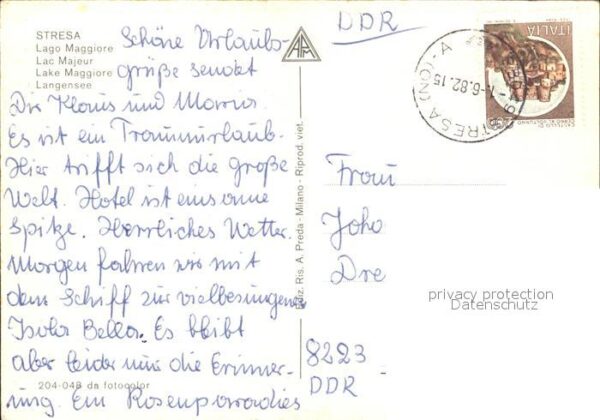 STRESA
Lago Maggiore
Lac Majeur
Lake Maggiore
Langensee
Schöne Urlaubs-
grüße sendet
Dir Klaus und Maria.
Es ist ein Traumurlaub.
Hier trifft sich die große
Welt. Hotel ist eins ane
Spitze. Herrliches Wetter.
Morgen fahren wir mit
dem Schiff zur vielbesungenen
Isola Bella. Es bleibt
aber leider nur die Erinner-
ung. Ein Rosenparadies
204-048 da fotocolor
Ediz. Ris. A. Preda - Milano - Riprod. viet.
DDR
ITALIA
STRESA (NO) - A
6.82.15
Frau
Joha
Dre
privacy protection
Datenschutz
8223
DDR